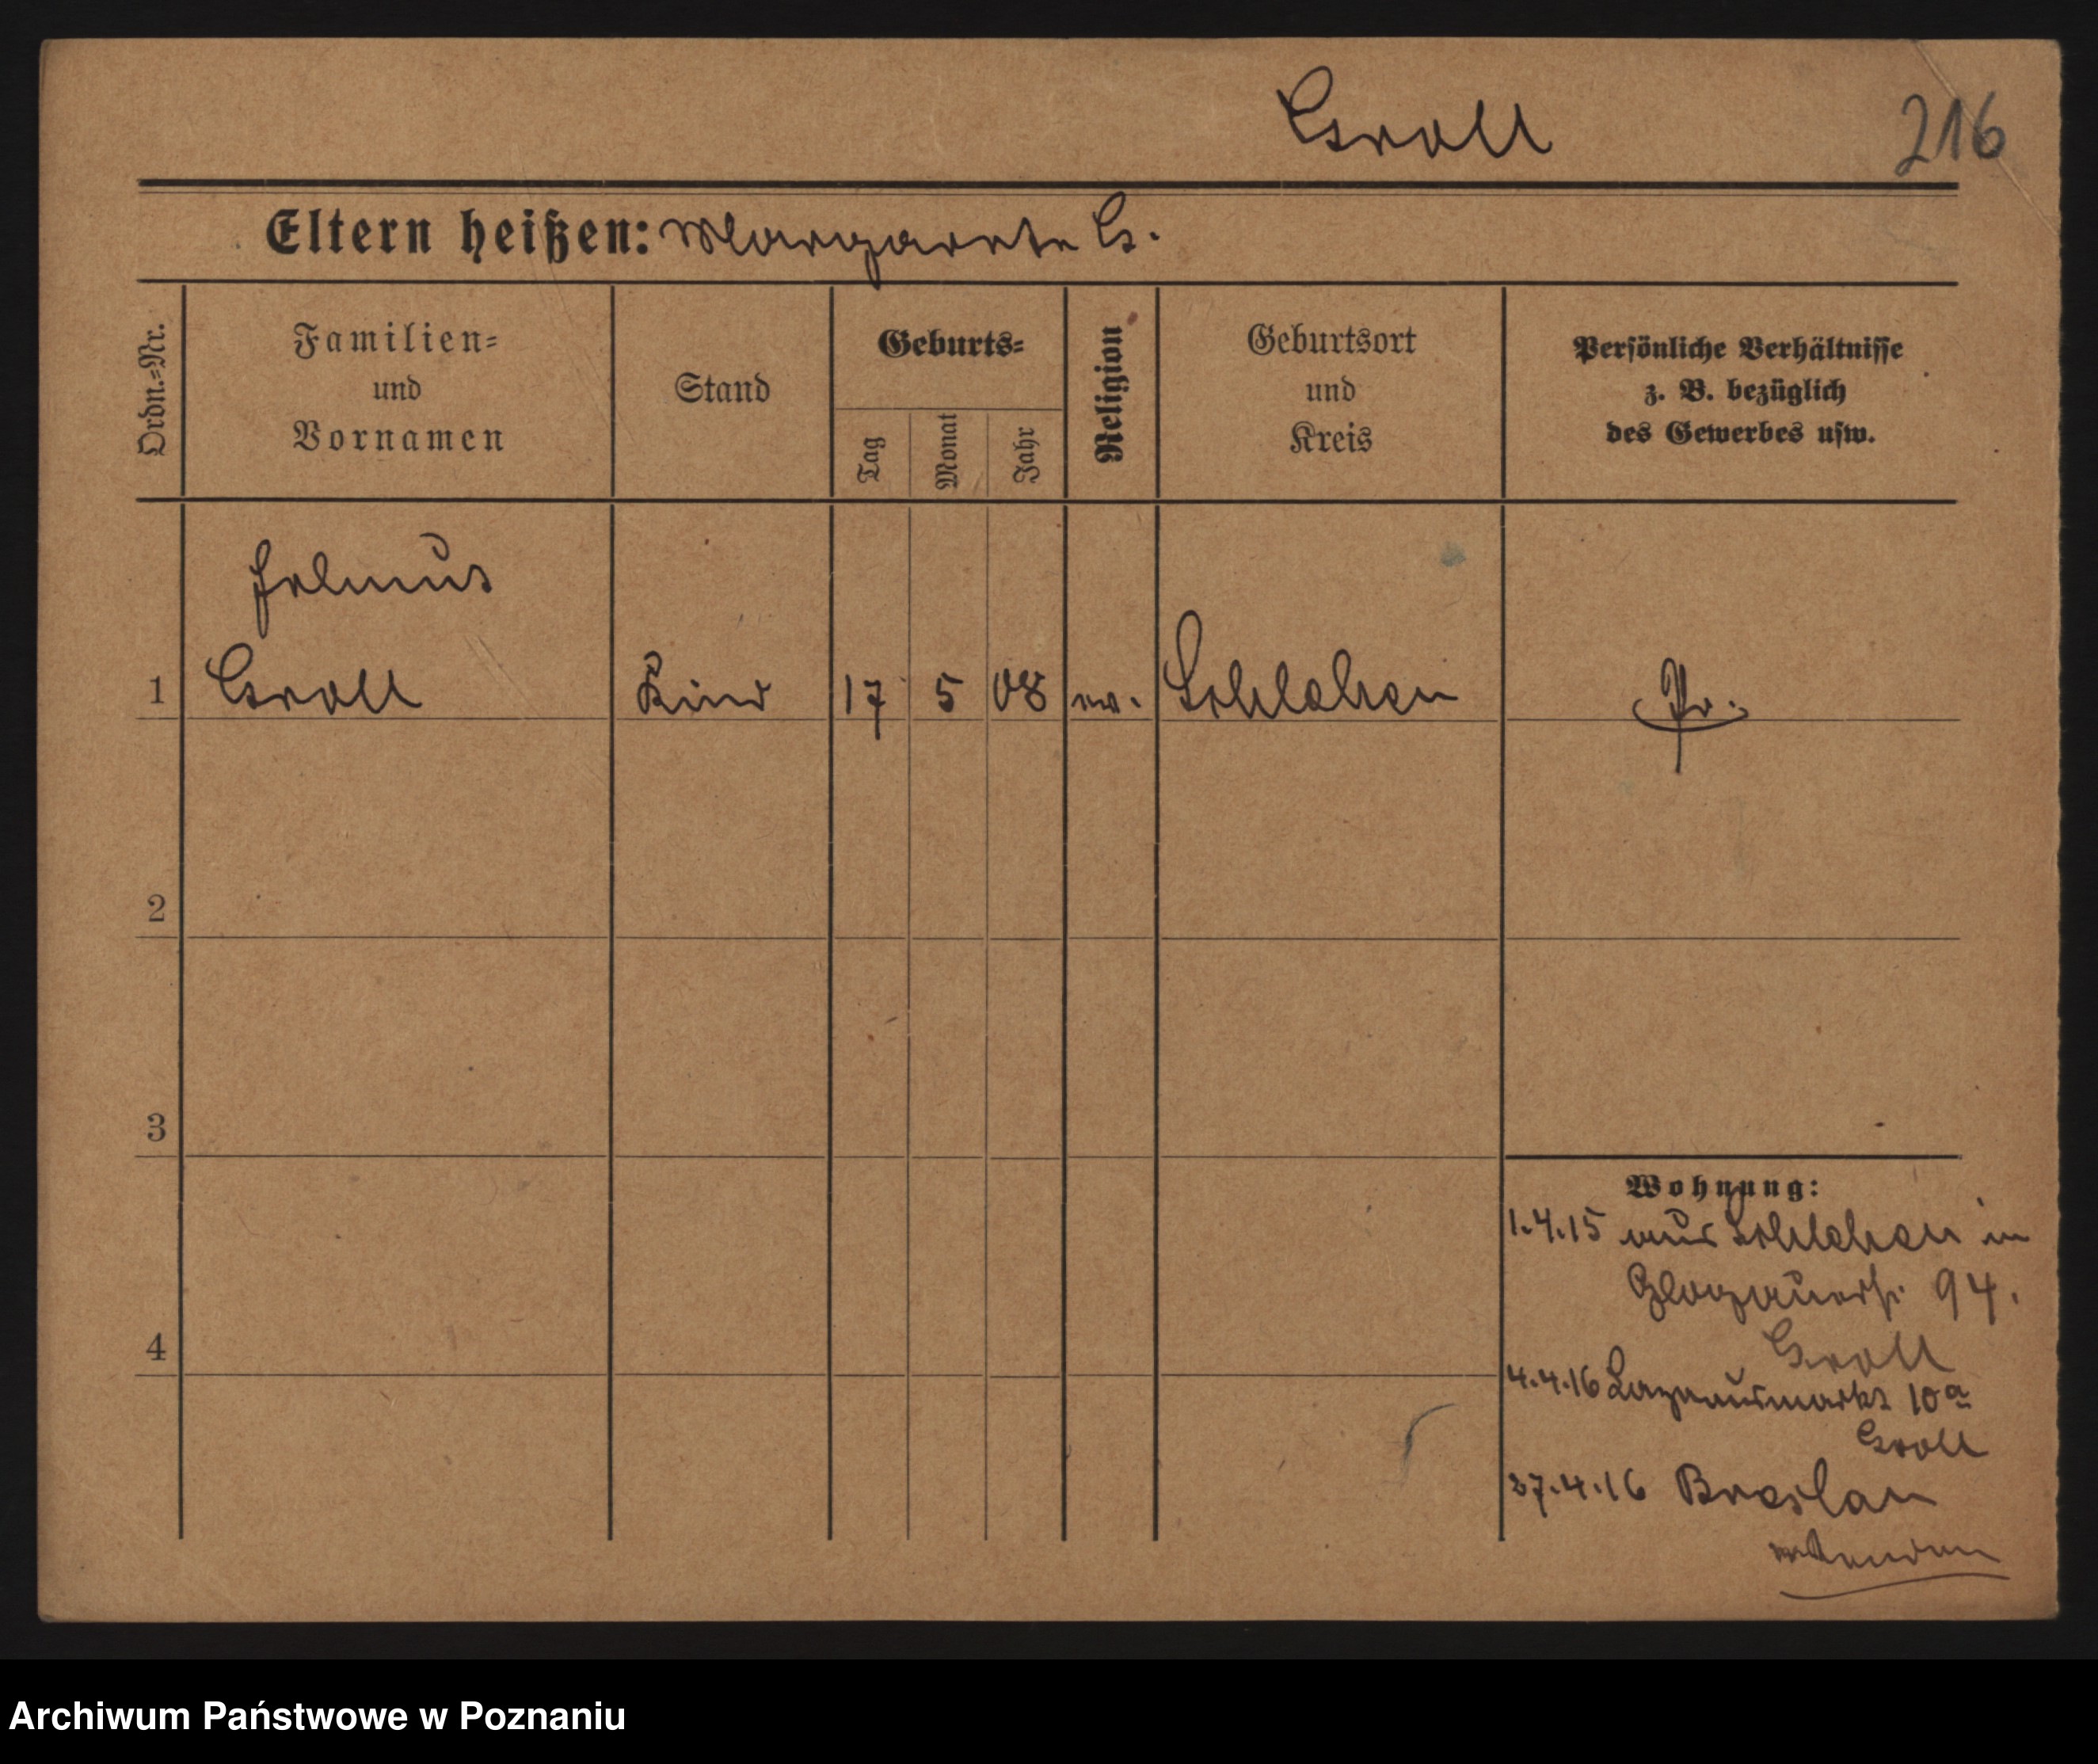 Groll 216
Eltern heißen: Margarete G.
Ordn.-Nr.
Familien-
und
Vornamen
Stand
Geburts-
Tag
Monat
Jahr
Religion
Geburtsort
und
Kreis
Persönliche Verhältnisse
z. B. bezüglich
des Gewerbes usw.
Helmut
1 Groll Kind 17 5 08 ev. Schlehen Pr.
2
3
4
Wohnung:
1.4.15 aus Schlehen in
Glogauerstr. 94.
Groll
4.4.16 Lazarusmarkt 10a
Groll
27.4.16 Breslau
Archiwum Państwowe w Poznaniu